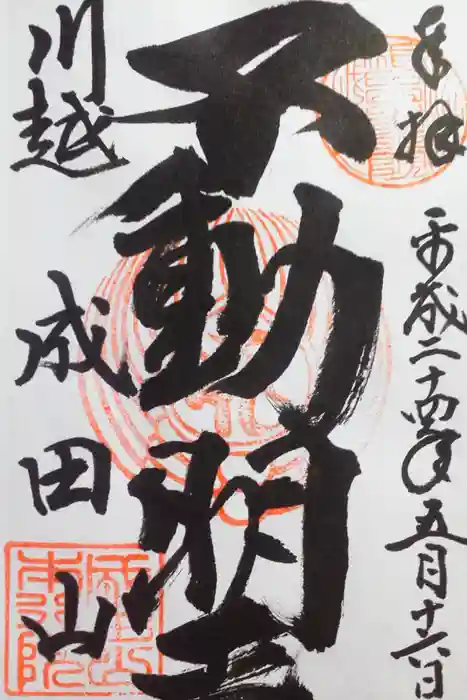 奉拝
平成二十四年五月十六日
不動明王
川越
成田山